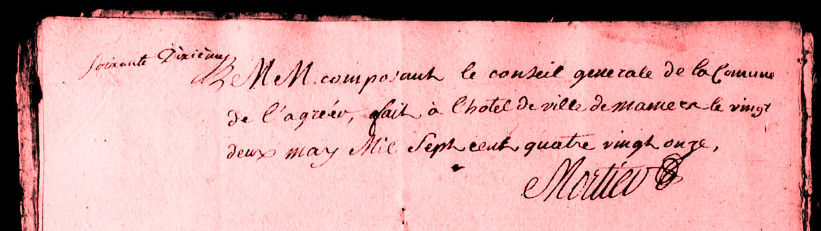 Soixante Dixieme
MM. composant le conseil generale de la Comune
de l'agréér, fait à l'hotel de ville de mamers le vingt
deux may Mil Sept cent quatre vingt onze,
Mortier